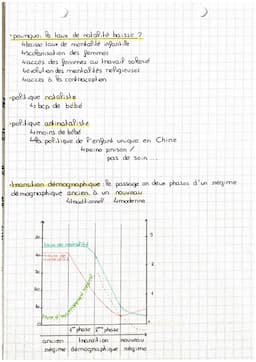 -pourquoi le taux de natalité baisse ?
↳baisse taux de mortalité infantile
↳scolarisation des femmes
↳accès des femmes au travail salarié
↳évolution des mentalités religieuses
↳accès à la contraception
-politique nataliste
↳bcp de bébé
-politique antinataliste
↳moins de bébé
↳la politique de l'enfant unique en Chine
↳peine prison /
pas de soin...
-transition démographique : le passage en deux phases d'un régime
démographique ancien à un nouveau
↳traditionnel ↳moderne
taux de natalité
taux de
mortalité
1ère phase 2ème phase
ancien transition nouveau
régime démographique régime